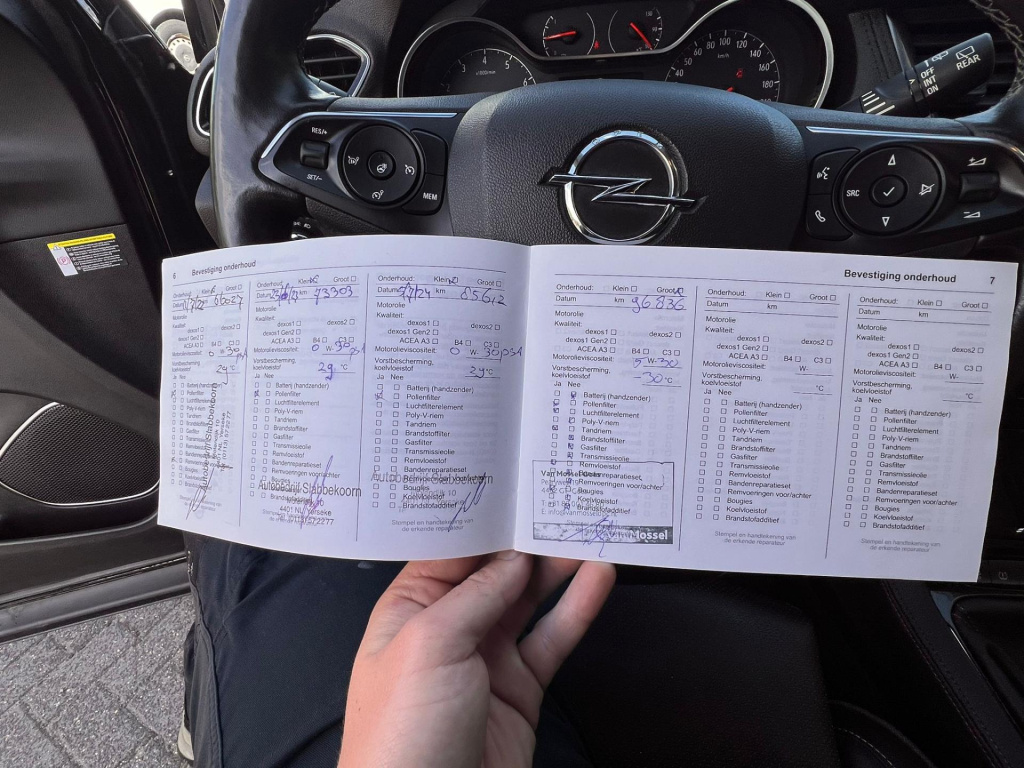 REG/+
SET/–
MEM
SRC
OFF
INT
ON
REAR
4
5
6
x1000/min
40
60
80
100
120
140
160
180
km/h
6 Bevestiging onderhoud
Onderhoud: Klein Groot
Datum km 66027
Motorolie
Kwaliteit:
dexos1 dexos2
dexos1 Gen2
ACEA A3 B4 C3
Motorolieviscositeit: 0 W- 30
Vorstbescherming,
koelvloeistof 29 °C
Ja Nee
Batterij (handzender)
Pollenfilter
Luchtfilterelement
Poly-V-riem
Tandriem
Brandstoffilter
Gasfilter
Transmissieolie
Remvloeistof
Bandenreparatieset
Autobedrijf Slabbekoorn
Onderhoud: Klein Groot
Datum km 73303
Motorolie
Kwaliteit:
dexos1 dexos2
dexos1 Gen2
ACEA A3 B4 C3
Motorolieviscositeit: 0 W- 30
Vorstbescherming,
koelvloeistof 29 °C
Ja Nee
Batterij (handzender)
Pollenfilter
Luchtfilterelement
Poly-V-riem
Tandriem
Brandstoffilter
Gasfilter
Transmissieolie
Remvloeistof
Bandenreparatieset
Remvoeringen voor/achter
Autobedrijf Slabbekoorn
Onderhoud: Klein Groot
Datum 5/7/24 km 85612
Motorolie
Kwaliteit:
dexos1 dexos2
dexos1 Gen2
ACEA A3 B4 C3
Motorolieviscositeit: 0 W- 30
Vorstbescherming,
koelvloeistof 29 °C
Ja Nee
Batterij (handzender)
Pollenfilter
Luchtfilterelement
Poly-V-riem
Tandriem
Brandstoffilter
Gasfilter
Transmissieolie
Remvloeistof
Bandenreparatieset
Autobedrijf Slabbekoorn
Bougies
Koelvloeistof
Brandstofadditief
Stempel en handtekening van
de erkende reparateur
Bevestiging onderhoud 7
Onderhoud: Klein Groot
Datum km 96836
Motorolie
Kwaliteit:
dexos1 dexos2
dexos1 Gen2
ACEA A3 B4 C3
Motorolieviscositeit: 5 W- 30
Vorstbescherming,
koelvloeistof -30 °C
Ja Nee
Batterij (handzender)
Pollenfilter
Luchtfilterelement
Poly-V-riem
Tandriem
Brandstoffilter
Gasfilter
Transmissieolie
Remvloeistof
Bandenreparatieset
Remvoeringen voor/achter
Bougies
Koelvloeistof
Brandstofadditief
Van Mossel
Onderhoud: Klein Groot
Datum km
Motorolie
Kwaliteit:
dexos1 dexos2
dexos1 Gen2
ACEA A3 B4 C3
Motorolieviscositeit: W-
Vorstbescherming,
koelvloeistof °C
Ja Nee
Batterij (handzender)
Pollenfilter
Luchtfilterelement
Poly-V-riem
Tandriem
Brandstoffilter
Gasfilter
Transmissieolie
Remvloeistof
Bandenreparatieset
Remvoeringen voor/achter
Bougies
Koelvloeistof
Brandstofadditief
Stempel en handtekening van
de erkende reparateur
Onderhoud: Klein Groot
Datum km
Motorolie
Kwaliteit:
dexos1 dexos2
dexos1 Gen2
ACEA A3 B4 C3
Motorolieviscositeit: W-
Vorstbescherming,
koelvloeistof °C
Ja Nee
Batterij (handzender)
Pollenfilter
Luchtfilterelement
Poly-V-riem
Tandriem
Brandstoffilter
Gasfilter
Transmissieolie
Remvloeistof
Bandenreparatieset
Remvoeringen voor/achter
Bougies
Koelvloeistof
Brandstofadditief
Stempel en handtekening van
de erkende reparateur